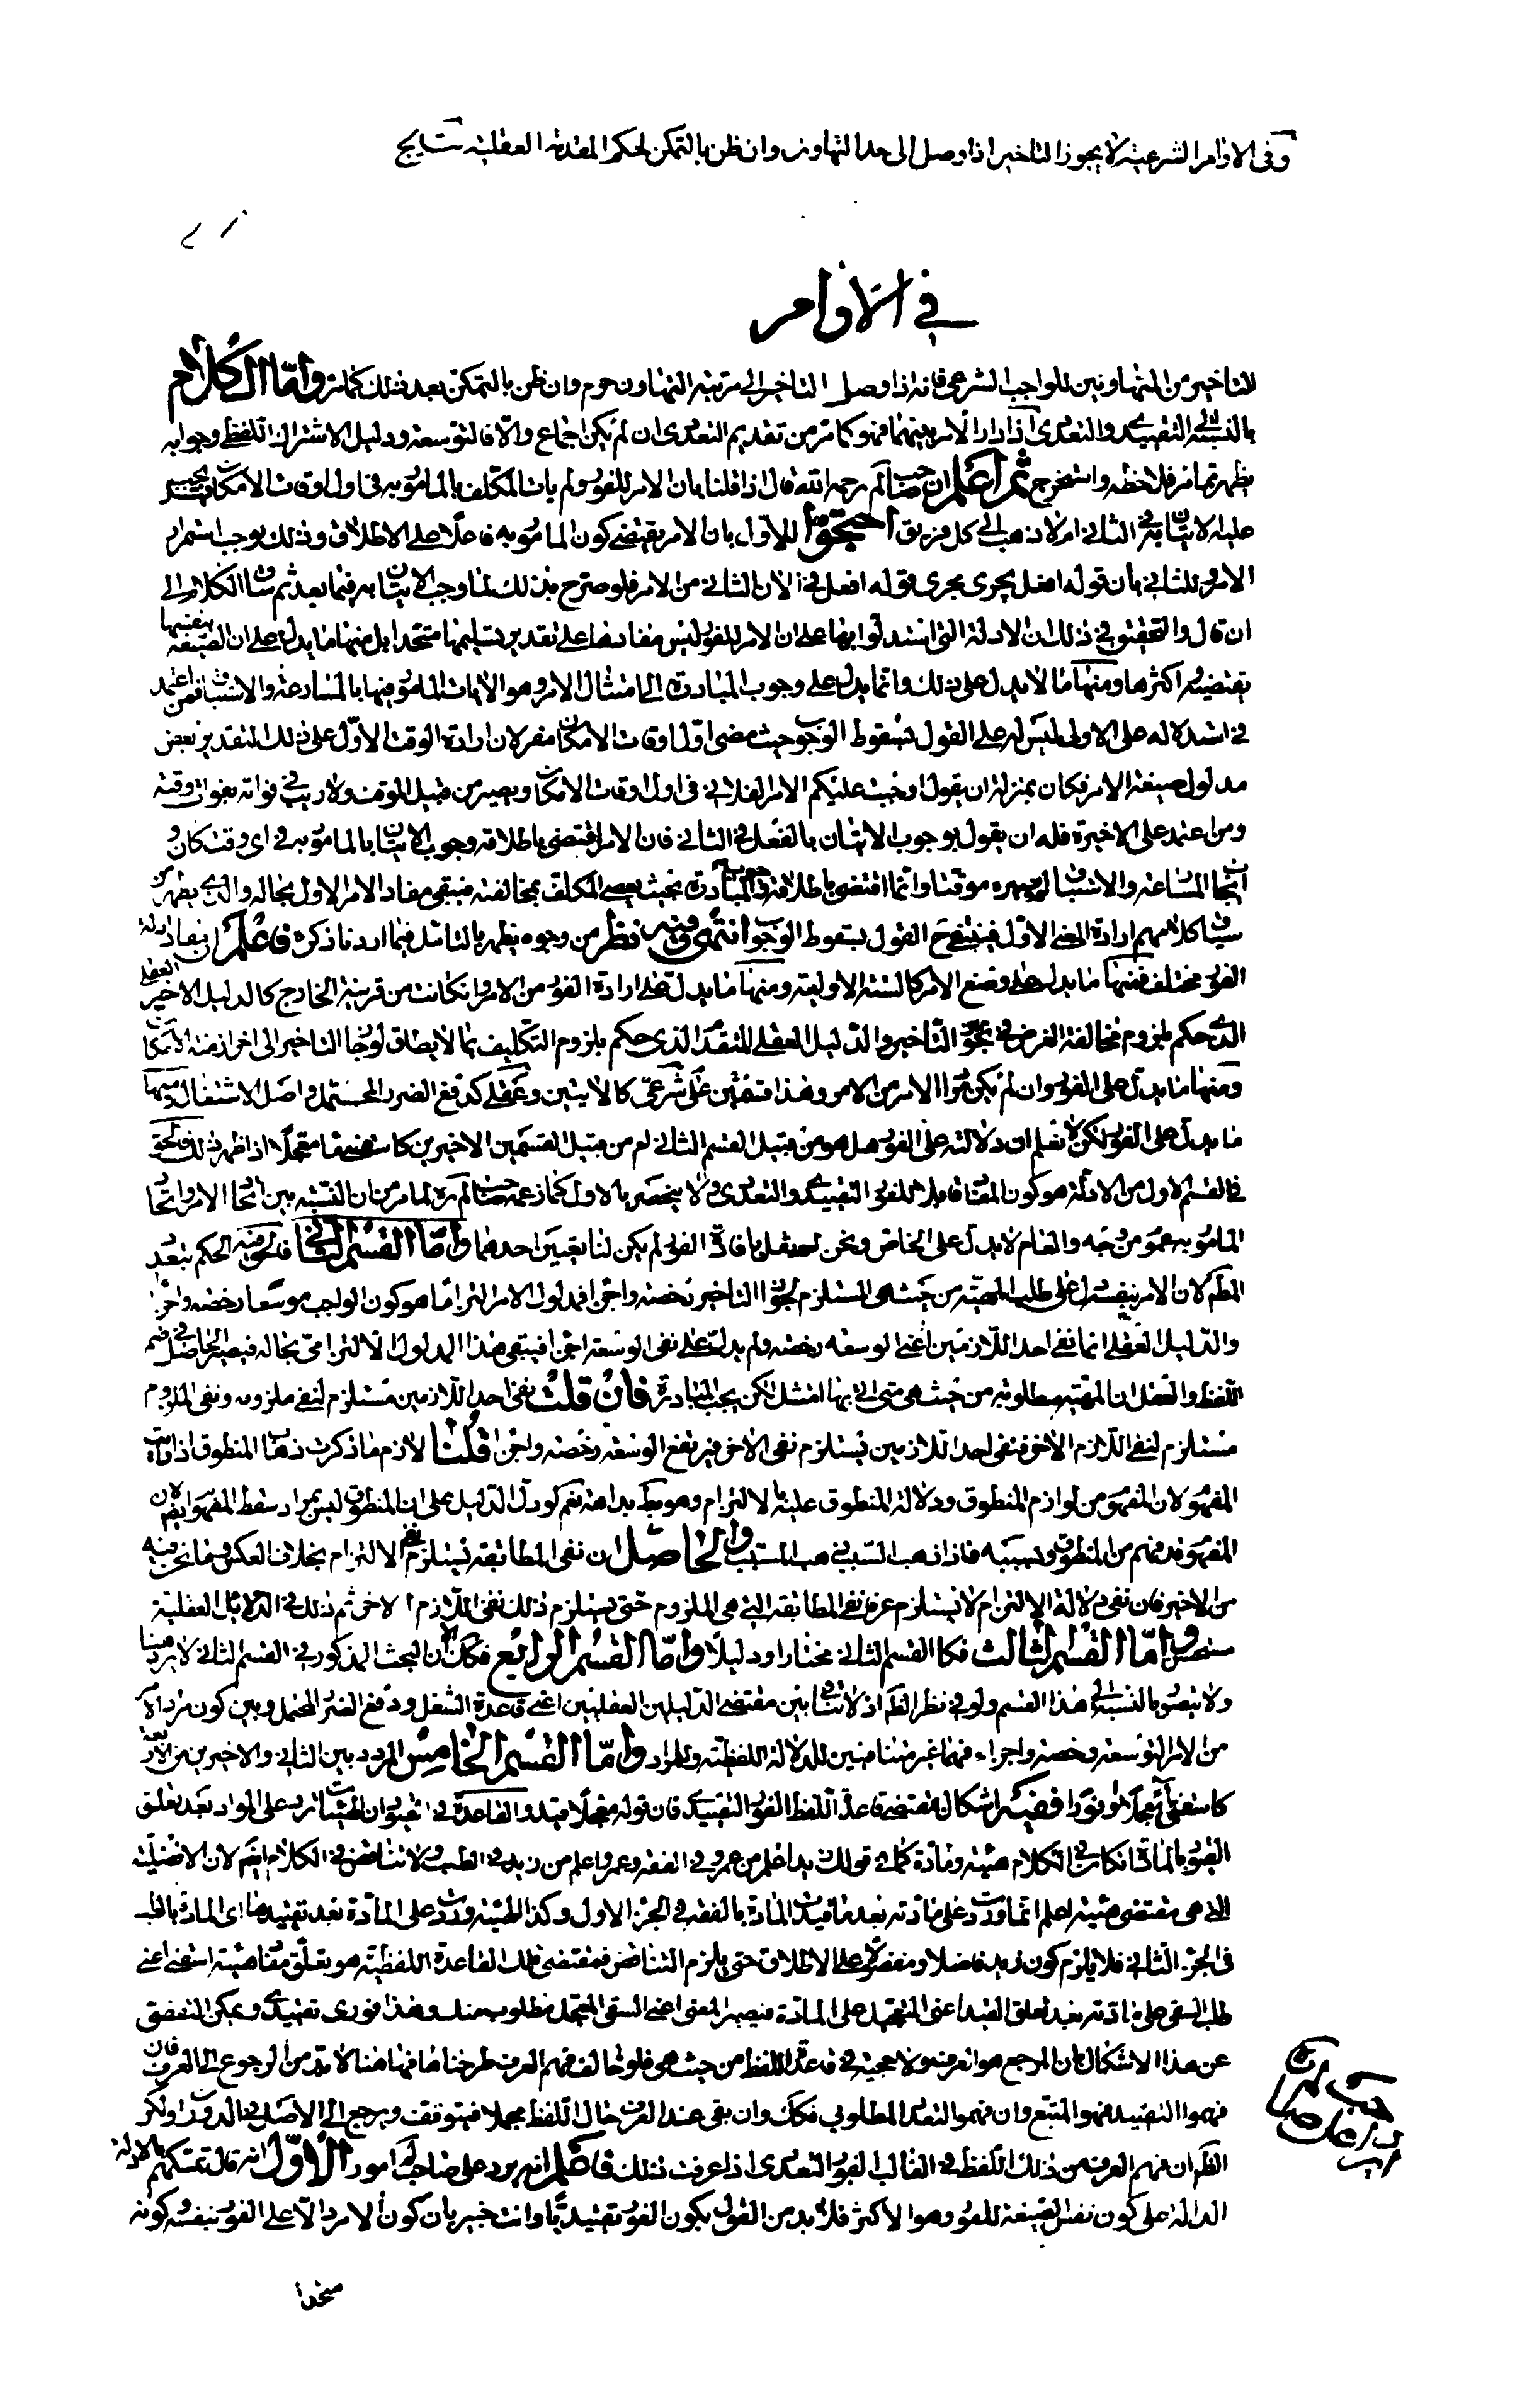 وفى الاوامر الشرعية لا يجوز التاخير اذا وصل الى حد التهاون وان ظن بالتمكن لحكم المقدمة العقلية
في الاوامر
للتاخير من المتهاونين للواجب الشرعى فانه اذا وصل التاخير الى مرتبة التهاون حرم وان ظن بالتمكن بعد ذلك كما مر واما الكلام
بالنسبة الى التقييدى والتعددى اذا دار الامر بينهما فهو كما مر من تقديم التعددى ان لم يكن اجماع والا فالتوسعة ودليل الاشتراك اللفظى وجوابه
يظهر مما مر فلاحظه واستخرج ثم اعلم ان صاحب لم رحمه الله قال اذا قلنا بان الامر للفور ولم يات المكلف بالمامور به فى اول اوقات الامكان فهل يجب
عليه الاتيان به في الثانى ام لا ذهب الى كل فريق احتجوا للاول بان الامر يقتضى كون المامور به فاعلا على الاطلاق وذلك يوجب استمرار
الامر وللثانى بان قوله افعل يجرى مجرى قوله افعل فى الان الثانى من الامر فلو صرح بذلك لما وجب الاتيان به فيما بعد ثم ساق الكلام الى
ان قال والتحقيق فى ذلك ان الادلة التى استدلوا بها على ان الامر للفور ليس مفادها على تقدير تسليمها متحدا بل منها ما يدل على ان الصيغة بنفسها
يقتضيه وهو اكثرها ومنها ما لا يدل على ذلك وانما يدل على وجوب المبادرة الى امتثال الامر وهو الايات المامور فيها بالمسارعة والاستباق فمن اعتمد
فى استدلاله على الاولى ليس له على القول بسقوط الوجوب حيث مضى اول اوقات الامكان مفر لان ارادة الوقت الاول على ذلك التقدير بعض
مدلول صيغة الامر فكان بمنزلة ان يقول اوجبت عليكم الامر الفلانى فى اول اوقات الامكان ويصير من قبيل الموقت ولا ريب فى فواته بفوات وقته
ومن اعتمد على الاخيرة فله ان يقول بوجوب الاتيان بالفعل فى الثانى فان الامر اقتضى باطلاقه وجوب الاتيان بالمامور به فى اى وقت كان و
ايجاب المسارعة والاستباق لم يصيره موقتا وانما اقتضى باطلاقه وجوب المبادرة بحيث يعصى المكلف بمخالفته فيبقى مفاد الامر الاول بحاله والذى يظهر من
سياق كلامهم ارادة المعنى الاول فينبغى ح القول بسقوط الوجوب انتهى وفيه نظر من وجوه يظهر بالتامل فيما اردنا ذكره فاعلم ان مفاد ادلة
الفور مختلف فمنها ما يدل على وضع الامر كالستة الاولية ومنها ما يدل على ارادة الفور من الامر وان كانت من قرينة الخارج كالدليل الاخير العقلى
الذى حكم بلزوم مخالفة الغرض فى تجويز التاخير والدليل العقلى المتقدم الذى حكم بلزوم التكليف بما لا يطاق لو جاز التاخير الى اخر ازمنة الامكان
ومنها ما يدل على الفور وان لم يكن مرادا الامر من الامر وهذا قسمين على شرعى كالايتين وعقلى كدفع الضرر المحتمل واصل الاشتغال ومنها
ما يدل على الفور لكن لا نعلم ان دلالته على الفور هل هو من قبيل القسم الثانى ام من قبيل القسمين الاخيرين كاسقنى ماء معجلا اذا ظهر ذلك فالحق
فى القسم الاول من الادلة هو كون المفاد قابلا للفور التقييدى والتعددى ولا ينحصر بالاول كما زعمه صاحب لم ره لما مر من ان النسبة بين ايجاب الامر وايجاب
المامور به عموم من وجه والعام لا يدل على الخاص ونحن لو نقل بافادة الفور لم يكن لنا تعيين احدهما واما القسم الثانى فالحق فيه الحكم بتعدد
المط لان الامر بنفسه دل على طلب المهية من حيث هى المستلزم لجواز التاخير رخصة واجزاء فمدلول الامر التزاما هو كون الواجب موسعا رخصة واجزاء
والدليل العقلى انما نفى احد اللازمين اعنى الوسعة رخصة ولم يدل على نفى الوسعة اجزاء فيبقى هذا المدلول الالتزامى بحاله فيصير الحاصل فى ضم
اللفظ والعقل ان المهية مطلوبة من حيث هى متى اتى بها امتثل لكن يجب المبادرة فان قلت نفى احد اللازمين مستلزم لنفى ملزومه ونفى الملزوم
مستلزم لنفى اللازم الاخر فنفى احد اللازمين يستلزم نفى الاخر فيرتفع الوسعة رخصة واجزاء قلنا لازم ما ذكرت ذهاب المنطوق اذا ذهب
المفهوم لان المفهوم من لوازم المنطوق ودلالة المنطوق عليه بالالتزام وهو بط بداهة نعم لو دل الدليل على ان المنطوق ليس بمراد سقط المفهوم ايض لان
المفهوم قد فهم من المنطوق وبسببه فاذا ذهب السبب ذهب المسبب والحاصل ان نفى المطابقة يستلزم نفى الالتزام بخلاف العكس وما نحن فيه
من الاخير فان نفى دلالة الالتزام لا يستلزم عرفا نفى المطابقة التى هى الملزوم حتى يستلزم ذلك نفى اللازم الاخر ثم ذلك فى الدلائل العقلية
واما القسم الثالث فكا القسم الثانى مختارا ودليلا واما القسم الرابع فكك لان البحث المذكور فى القسم الثانى لا يرد هنا
ولا يتصور بالنسبة الى هذا القسم ولو فى نظر الظ اذ لا تنافى بين مقتضى الدليلين العقليين اعنى قاعدة الشغل ودفع الضرر المحتمل وبين كون مراد الامر
من الامر التوسعة رخصة واجزاء فهما غير منافيين للدلالة اللفظية وللمراد واما القسم الخامس المردد بين الثانى والاخيرين من الاربعة
كاسقنى معجلا او فورا ففيه اشكال مقتضى قاعدة اللفظ الفور التقييدى فان قوله معجلا قيد والقاعدة فى القيود ان الهيئات ترد على المواد بعد تعلق
القيود بالمادة ان كان فى الكلام هيئة ومادة كما فى قولك زيد اعلم من عمرو فى الفقه وعمرو اعلم من زيد فى الطب ولا تناقض فى الكلام ايض لان الافضلية
التى هى مقتضى هيئة اعلم انما وردت على مادته بعد ما قيدت المادة بالفقه فى الجزء الاول وكذا الهيئة وردت على المادة بعد تقييدها اى المادة بالطب
فى الجزء الثانى فلا يلزم كون زيد فاضلا ومفضولا على الاطلاق حتى يلزم التناقض فمقتضى تلك القاعدة اللفظية هو تعلق مفاد هيئة اسقنى اعنى
طلب السقى على مادته بعد تعلق القيد اعنى التعجيل على المادة فيصير المعنى اعنى السقى المعجل مطلوب منك وهذا فورى تقييدى ويمكن التفصى
عن هذا الاشكال بان المرجع هو العرف ولا حجية فى قاعدة اللفظ من حيث هى فلو خالف فهم العرف طرحناها فها هنا لا بد من الرجوع الى العرف فان
فهموا التقييد فهو المتبع وان فهموا التعدد المطلوبى فكك وان بقى عند العرف حال اللفظ مجملا فيتوقف ويرجع الى الاصل فى الدوران ولكن
الظ ان فهم العرف من ذلك اللفظ فى الغالب الفور التعددى اذا عرفت ذلك فاعلم انه يرد على صاحب لم امور الاول انه قال تمسكهم بالادلة
الدالة على كون نفس الصيغة للفور وهو الاكثر فلا بد من القول بكون الفور تقييديا وانت خبير بان كون الامر دالا على الفور بنفسه كونه
متحدا